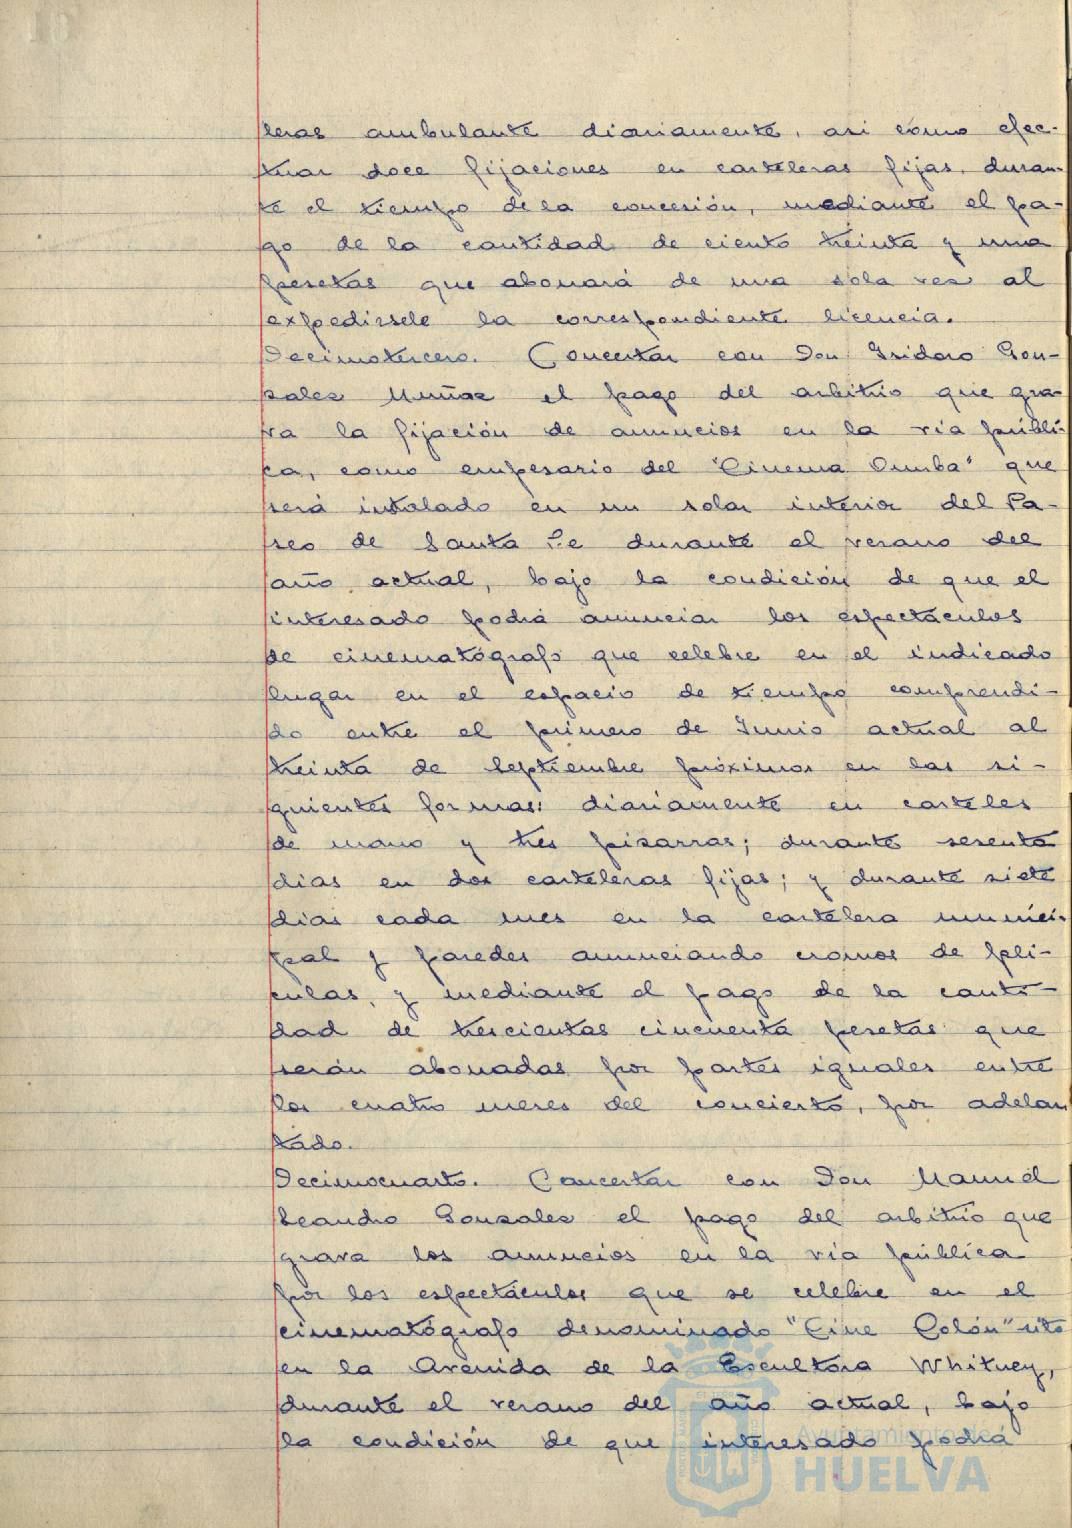 leras ambulante diariamente, asi como efec-
tuar doce fijaciones en carteleras fijas, duran-
te el tiempo de la concesión, mediante el pa-
go de la cantidad de ciento treinta y una
pesetas que abonará de una sola vez al
expedirsele la correspondiente licencia.
Decimotercero. Concertar con Don Isidoro Gon-
zalez Muñoz el pago del arbitrio que gra-
va la fijación de anuncios en la via públi-
ca, como empesario del "Cinema Oumba" que
será instalado en un solar interior del Pa-
seo de Santa Fe durante el verano del
año actual, bajo la condición de que el
interesado podrá anunciar los espectáculos
de cinematógrafo que celebre en el indicado
lugar en el espacio de tiempo comprendi-
do entre el primero de Junio actual al
treinta de Septiembre próximos en las si-
guientes formas: diariamente en carteles
de mano y tres pizarras; durante sesenta
dias en dos carteleras fijas; y durante siete
dias cada mes en la cartelera munici-
pal y paredes anunciando cromos de peli-
culas, y mediante el pago de la canti-
dad de trescientas cincuenta pesetas que
serán abonadas por partes iguales entre
los cuatro meses del concierto, por adelan
tado.
Decimocuarto. Concertar con Don Manuel
Leandro Gonzalez el pago del arbitrio que
grava los anuncios en la via pública
por los espectáculos que se celebre en el
cinematógrafo denominado "Cine Colón" sito
en la Avenida de la Escultora Whitney,
durante el verano del año actual, bajo
la condición de que interesado podrá
Ayuntamiento de
HUELVA